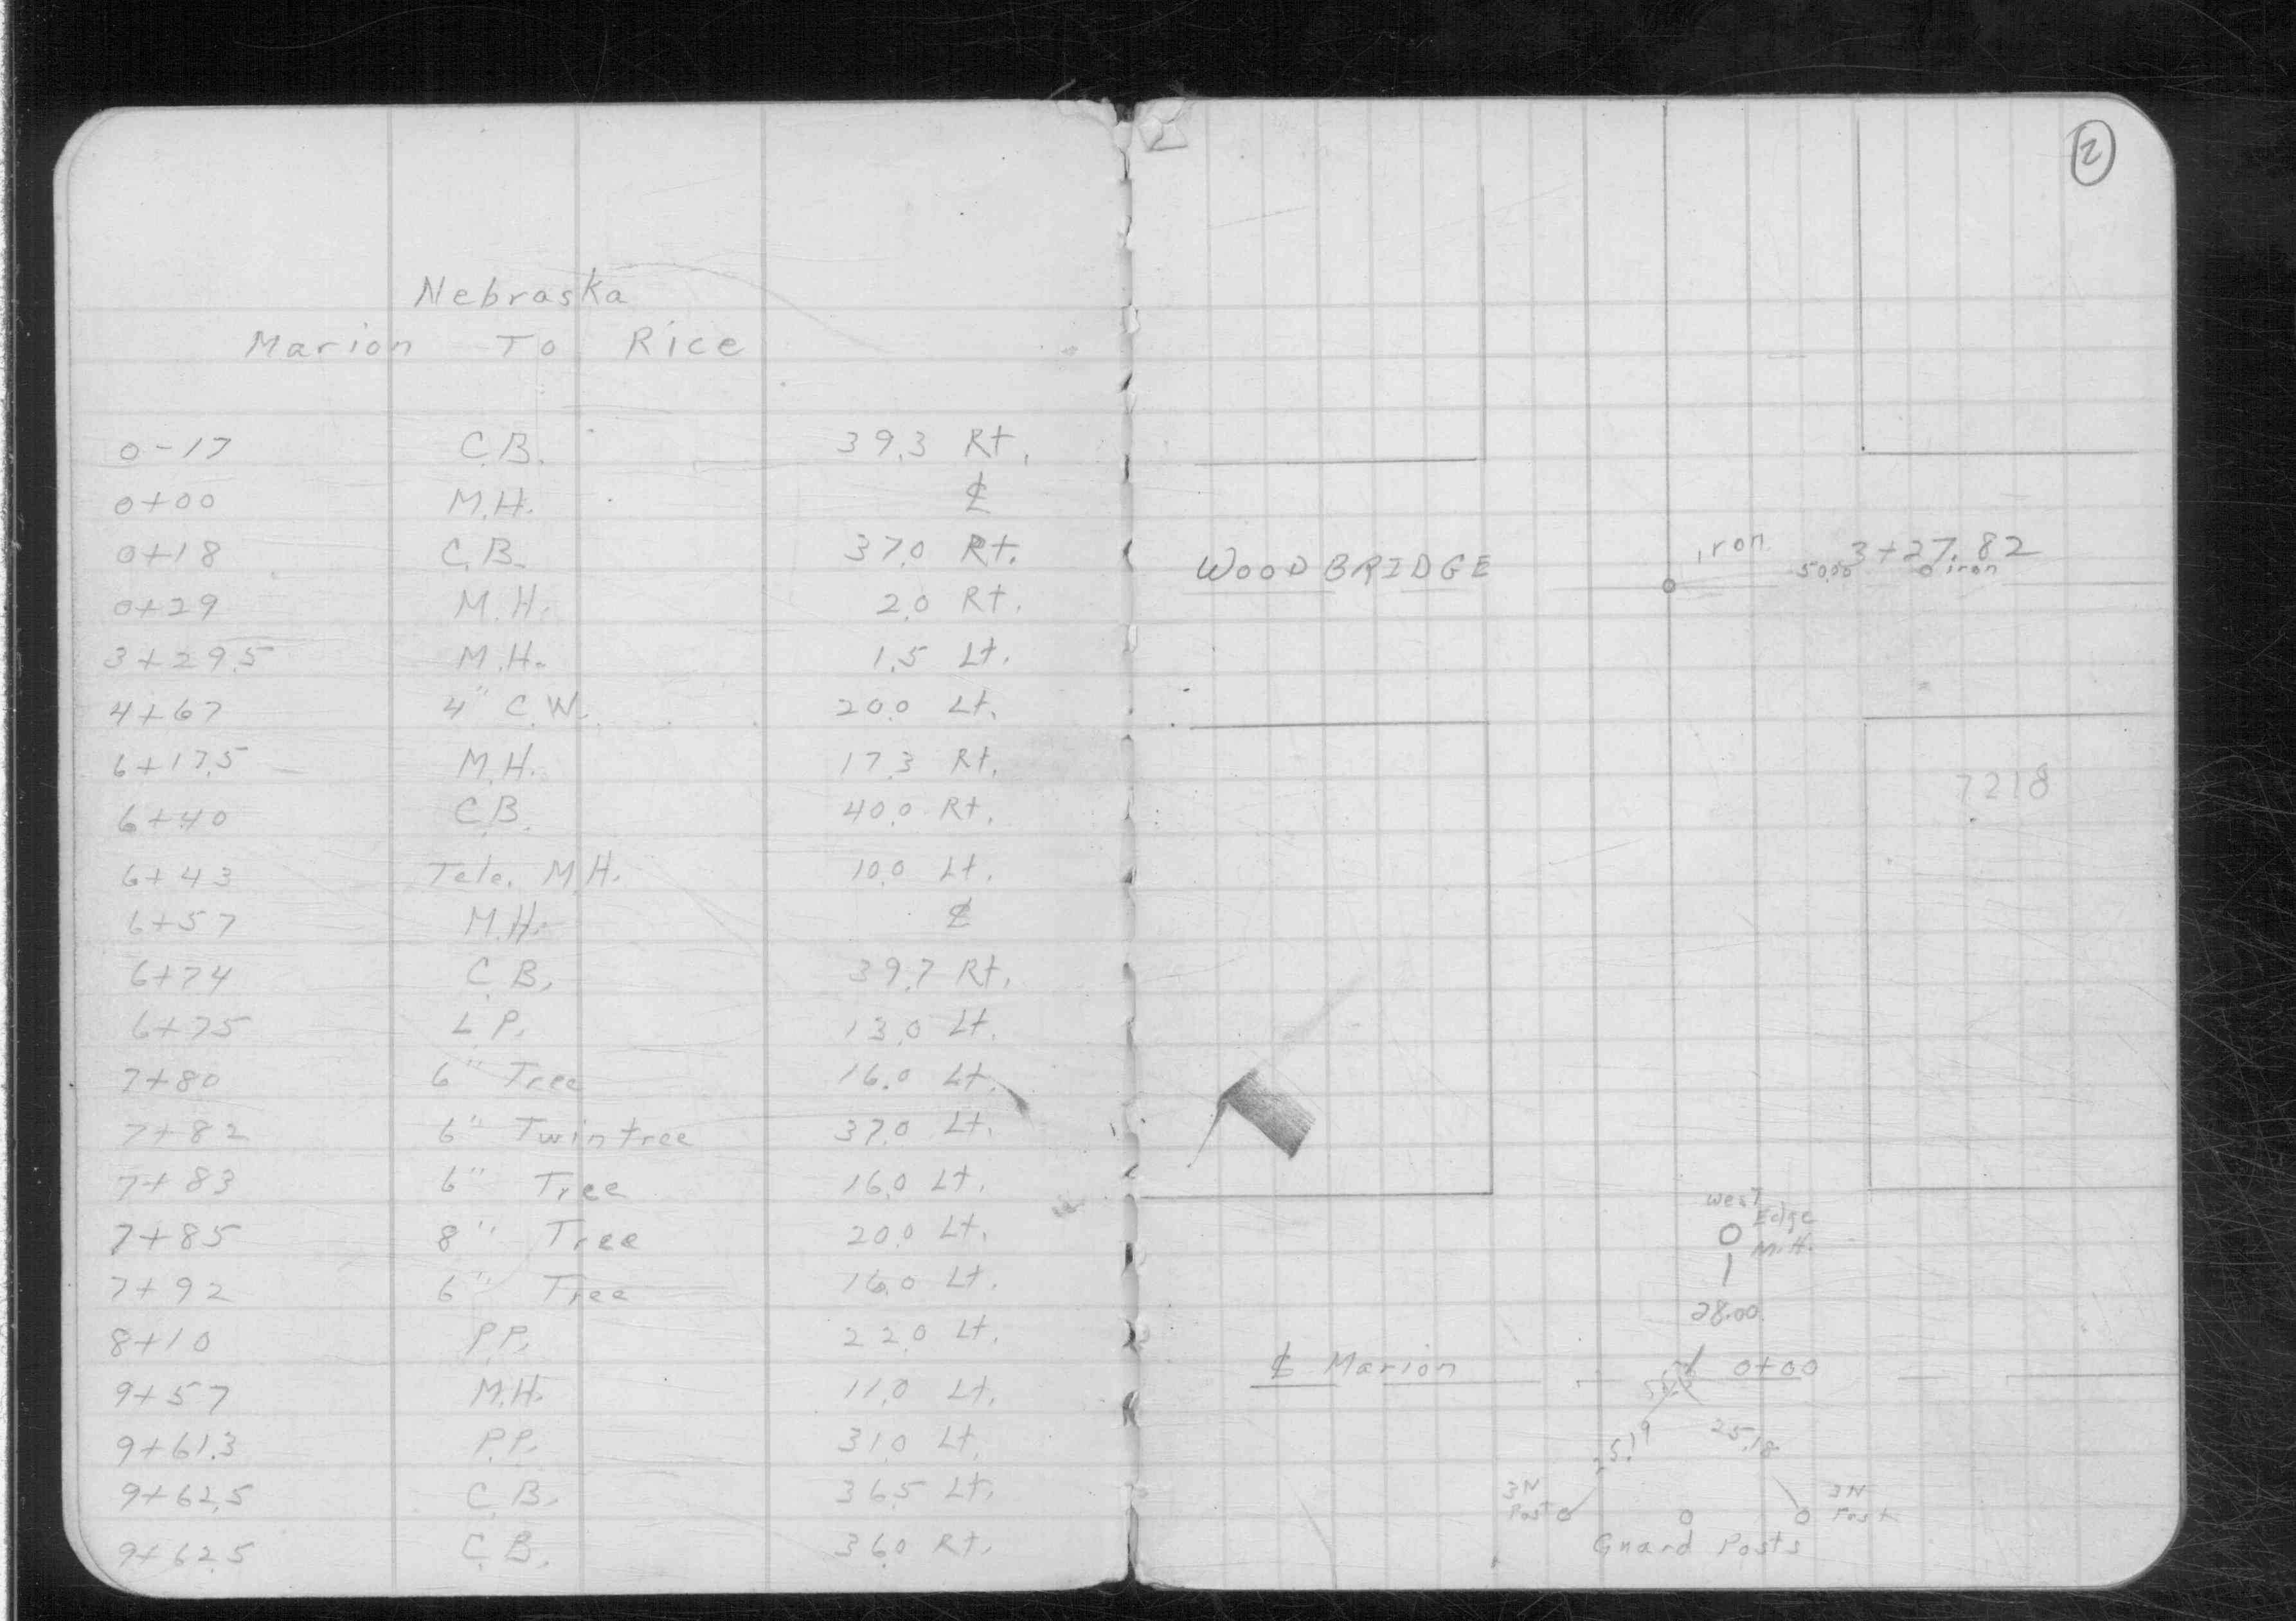 Nebraska
Marion To Rice
0-17 C.B. 39.3 Rt.
0+00 M.H. ℄
0+18 C.B. 37.0 Rt.
0+29 M.H. 2.0 Rt.
3+29.5 M.H. 1.5 Lt.
4+67 4" C.W. 20.0 Lt.
6+17.5 M.H. 17.3 Rt.
6+40 C.B. 40.0 Rt.
6+43 Tele. M.H. 10.0 Lt.
6+57 M.H. ℄
6+74 C.B. 39.7 Rt.
6+75 L.P. 13.0 Lt.
7+80 6" Tree 16.0 Lt.
7+82 6" Twintree 37.0 Lt.
7+83 6" Tree 16.0 Lt.
7+85 8" Tree 20.0 Lt.
7+92 6" Tree 16.0 Lt.
8+10 P.P. 22.0 Lt.
9+57 M.H. 11.0 Lt.
9+61.3 P.P. 31.0 Lt.
9+62.5 C.B. 36.5 Lt.
9+62.5 C.B. 36.0 Rt.
2
WOODBRIDGE
iron
3+27.82
50.00 iron
7218
West
Edge
M.H.
28.00
℄ Marion
0+00
25.19
25.18
3N
Post
3N
Post
Guard Posts